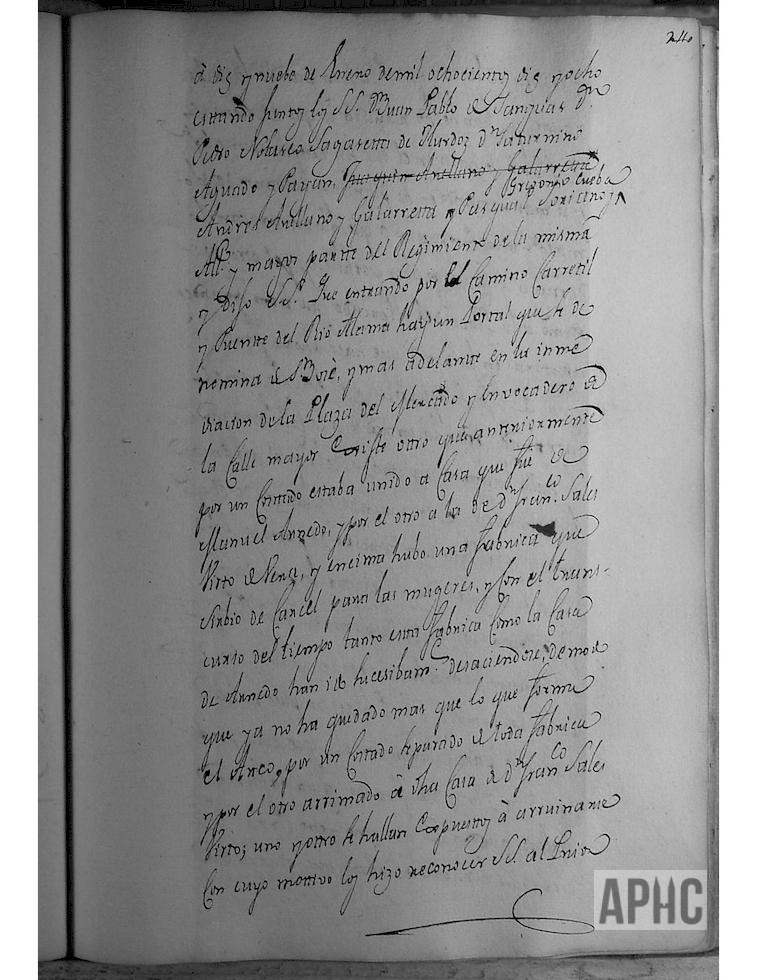 240
à diz y nuebe de Enero de mil ochocientos diz y ocho
estando juntos los SS. Dn Juan Pablo de Dn
Pedro Nolasco Sagasetta de Ylurdoz Dn Saturnino
Aguado y Joaquin Arellano y Galarretta
Gregorio Cueba
Andres Arellano y Galarretta y Pasqual Soriano
All. y mayor partte del Regimiento de la misma
y Dijo S Sa. Que entrando por el Camino Carretil
y Puentte del Rio Alama hay un Portal que se de
nomina de y mas adelante en la inme
diacion de la Plaza del Mercado y Envocadero de
la Calle mayor Existe ottro que anteriormente
por un Costtado estaba unido a Casa que fue de
Manuel Arnedo, y por el otro a la de Dn Franco. Sales
Virto de Vera, y encima hubo una fabrica que
Sirbio de Carcel para las mugeres, y con el trans-
curso del tiempo tanto esta fabrica como la Casa
de Arnedo han ido sucesibamte. desaciendose, de mode
que ya no ha quedado mas que lo que forma
el Arco, por un Costado separado de toda fabrica
y por el otro arrimado à dha Casa de Dn Franco Sales
Virto; uno y ottro se hallan Expuesttos à arruinarse
Con cuyo mottivo los hizo reconocer SS. al
APHC